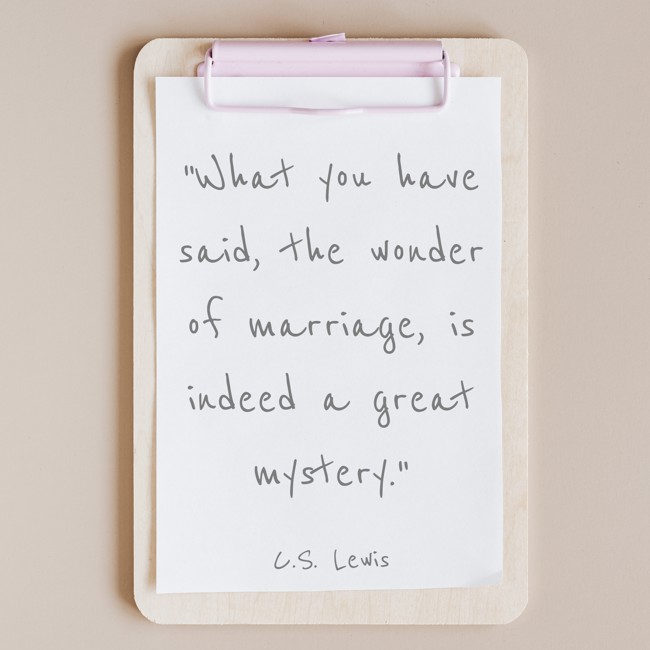 "What you have
said, the wonder
of marriage, is
indeed a great
mystery."
C.S. Lewis